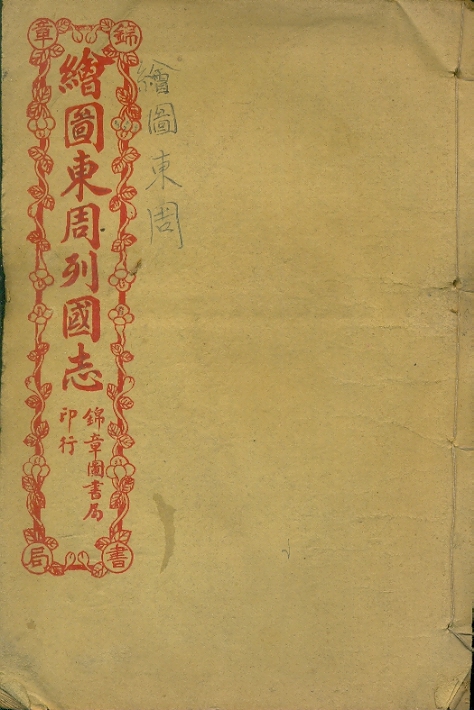 錦章
繪圖東周列國志
錦章圖書局
印行
書局
繪圖東周